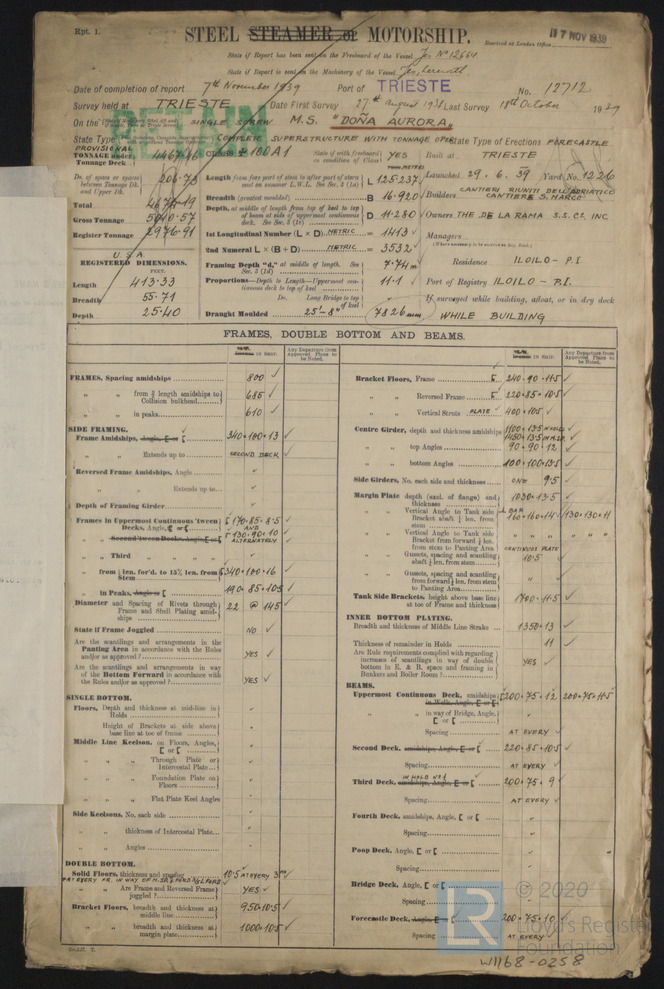 Rpt. 1.
STEEL STEAMER or MOTORSHIP.
Received at London Office
17 NOV 1939
State if Report has been sent on the Freeboard of the Vessel Yes No 12664
State if Report is sent on the Machinery of the Vessel Yes, herewith
Date of completion of report 7th November 1939 Port of TRIESTE No. 12712
Survey held at TRIESTE Date First Survey 27th August 1938 Last Survey 18th October 1939
On the SINGLE SCREW M.S. "DOÑA AURORA"
RETAIN
State Type COMPLETE SUPERSTRUCTURE WITH TONNAGE OPEN State Type of Erections FORECASTLE
PROVISIONAL
TONNAGE under Tonnage Deck 4467.46
CLASS 100A1
State if with freeboard as condition of Class YES
Built at TRIESTE
Do. of space or spaces between Tonnage Dk. and Upper Dk. 206.73
Total 4674.19
Gross Tonnage 5010.57
Register Tonnage 2976.91
U.S.A
REGISTERED DIMENSIONS.
FEET.
Length 413.33
Breadth 55.71
Depth 25.40
Length from fore part of stem to after part of stern post on summer L.W.L. See Sec. 3 (1a) L 125.237
Breadth (greatest moulded) B 16.920
Depth, at middle of length from top of keel to top of beam at side of uppermost continuous deck. See Sec. 3 (1c) D 11.280
1st Longitudinal Number (L × D) METRIC = 1413
2nd Numeral L × (B + D) METRIC = 3532
Framing Depth "d," at middle of length. See Sec. 3 (1d) 7.74 m
Proportions—Depth to Length—Uppermost continuous deck to top of keel 11.1
Do. Long Bridge to top of keel
Draught Moulded 25'-8" (7826 mm)
Launched 29.6.39 Yard No. 1226
Builders CANTIERI RIUNITI DELL'ADRIATICO CANTIERE S. MARCO
Owners THE DE LA RAMA S.S. C. INC
Managers
Residence ILOILO - P.I.
Port of Registry ILOILO - P.I.
If surveyed while building, afloat, or in dry dock
WHILE BUILDING
FRAMES, DOUBLE BOTTOM AND BEAMS.
IN SHIP.
Any Departure from Approved Plans to be Noted.
FRAMES, Spacing amidships 800
" " from ⅗ length amidships to Collision bulkhead 685
" " in peaks 610
SIDE FRAMING.
Frame Amidships, Angle, [ or [ 340·100·13
" " Extends up to SECOND DECK
Reversed Frame Amidships, Angle "
" " Extends up to "
Depth of Framing Girder "
Frames in Uppermost Continuous 'tween Decks, Angle, [ or [ 170·85·8.5
AND
" " Second 'tween Decks, Angle, [ or [ 130·90·10
ALTERNATELY
" " Third " " " " "
" " from ⅕ len. for'd. to 15% len. from Stem 340·100·16
" " in Peaks, Angle or [ 190·85·10.5
Diameter and Spacing of Rivets through Frame and Shell Plating amidships 22 @ 145
State if Frame Joggled NO
Are the scantlings and arrangements in the Panting Area in accordance with the Rules and/or as approved ? YES
Are the scantlings and arrangements in way of the Bottom Forward in accordance with the Rules and/or as approved ? YES
SINGLE BOTTOM.
Floors, Depth and thickness at mid-line in Holds "
" Height of Brackets at side above base line at toe of frame "
Middle Line Keelson, on Floors, Angles, [ or [ "
" " Through Plate or Intercostal Plate "
" " Foundation Plate on Floors "
" " Flat Plate Keel Angles "
Side Keelsons, No. each side "
" " thickness of Intercostal Plate "
" " Angles "
DOUBLE BOTTOM.
Solid Floors, thickness and spacing 10.5 AT EVERY 3RD
" " Are Frame and Reversed Frame joggled ? YES
Bracket Floors, breadth and thickness at middle line 950·10.5
" " breadth and thickness at margin plate 1000·10.5
Bracket Floors, Frame 240·90·11.5
" " Reversed Frame 220·85·10.5
" " Vertical Struts PLATE 400·10.5
Centre Girder, depth and thickness amidships 1100·13.5 IN HOLD
1450·13.5 IN M.SP.
" " top Angles 90·90·12
" " bottom Angles 100·100·13.5
Side Girders, No. each side and thickness ONE 9.5
Margin Plate depth (excl. of flange) and thickness 1030·13.5
" " Vertical Angle to Tank side Bracket abaft ¼ len. from stem 160·160·14 130·130·11
" " Vertical Angle to Tank side Bracket from forward ¼ len. from stem to Panting Area " " " " " "
" " Gussets, spacing and scantling abaft ¼ len. from stem CONTINUOUS PLATE 10.5
" " Gussets, spacing and scantling from forward ¼ len. from stem to Panting Area "
Tank Side Brackets, height above base line at toe of Frame and thickness 1700·11.5
INNER BOTTOM PLATING.
Breadth and thickness of Middle Line Strake 1350·13
Thickness of remainder in Holds 11
Are Rule requirements complied with regarding increases of scantlings in way of double bottom in E. & B. space and framing in Bunkers and Boiler Room ? YES
BEAMS.
Uppermost Continuous Deck, amidships 200·75·12 200·75·11.5
in Wells, Angle, [ or [
" " in way of Bridge, Angle, [ or [ "
Spacing AT EVERY
Second Deck, amidships, Angle, [ or [ 220·85·10.5
Spacing AT EVERY
IN HOLD No 1
Third Deck, amidships, Angle, [ or [ 200·75·9
Spacing AT EVERY
Fourth Deck, amidships, Angle, [ or [ "
Spacing "
Poop Deck, Angle, [ or [ "
Spacing "
Bridge Deck, Angle, [ or [
Spacing
Forecastle Deck, Angle, [ or [ 200·75·10
Spacing AT EVERY
© 2020
Lloyd's Register
Foundation
W1168-0258